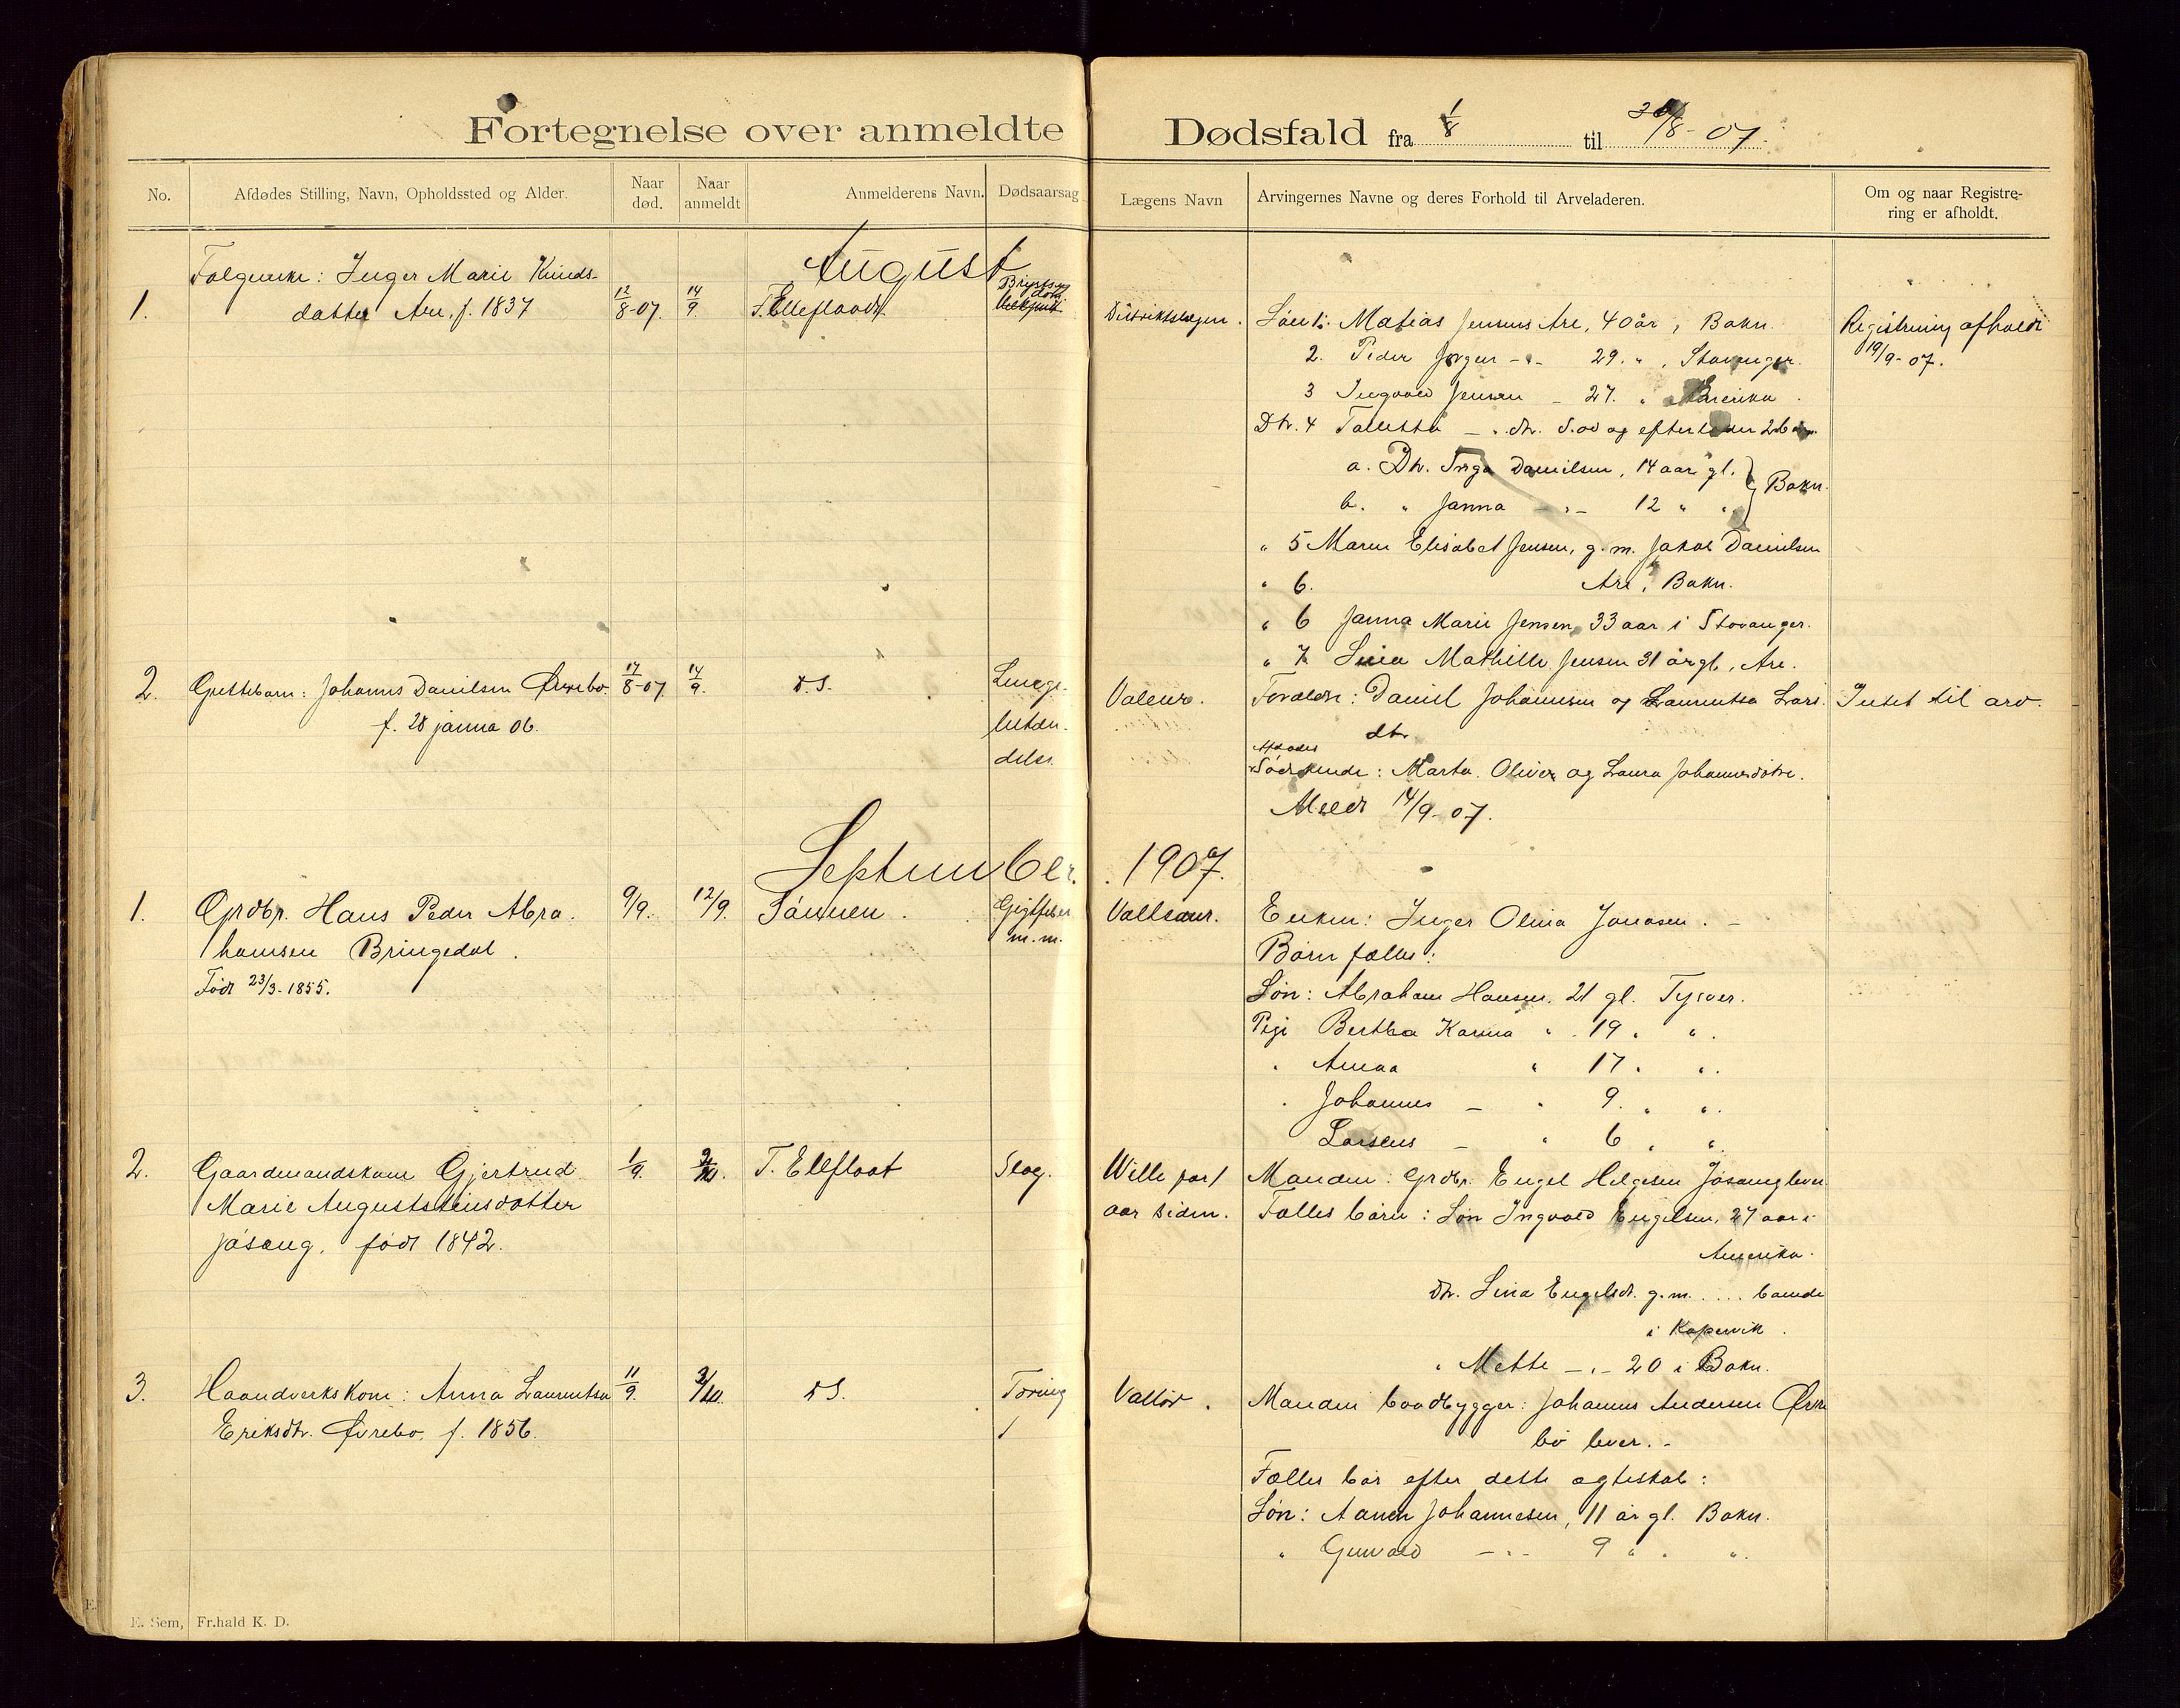 Fortegnelse over anmeldte Dødsfald fra 1/8 til 30/8-07.
No.
Afdødes Stilling, Navn, Opholdssted og Alder.
Naar død.
Naar anmeldt
Anmelderens Navn.
Dødsaarsag
Lægens Navn
Arvingernes Navne og deres Forhold til Arveladeren.
Om og naar Registrering er afholdt.
August
1.
Folgeenke: Inger Marie Knuds-
datter Are, f. 1837
12/8-07.
14/9
T. Elleflaadt
Distriktslægen.
Søn 1: Matias Jensens Are, 40 år, Bokn.
2. Peder Jørgen -"- 29. " , Stavanger.
3 Ingvald Jensen - 27. " Amerika.
Dtr. 4 Talletta - " dtr. død og efterlader 2 børn
a. Dtr. Inga Danielsen, 14 aar gl. } Bokn.
b. " Janna -"- 12 " "
" 5 Maren Elisabet Jensen, g. m. Jakob Danielsen
" 6. Are, Bokn.
" 6 Janna Marie Jensen, 33 aar i Stavanger.
" 7. Lina Mathille Jensen 31 år gl, Are.
Registrering afholdt
19/9-07.
2.
Guttebarn: Johannes Danielsen Øvrebø.
f. 28 janna 06.
17/8-07
14/9.
D. S.
Lunge-
betæn-
delse.
Valeur.
Forældre: Daniel Johannesen og Laurentsa Lars.
dtr.
Afdødes
Sødskende: Marta. Oliver og Laura Johannesdøtre.
Meldt 14/9-07.
Intet til arv.
September. 1907.
1.
Grdbr. Hans Peder Abra-
hamsen Bringedal.
Født 23/3-1855.
9/9.
12/9.
Sønnen.
Gigtfeber
m.m.
Valleur.
Enken: Inger Olina Jonasen. -
Børn fælles:
Søn: Abraham Hansen, 21 gl. Tysvær.
Pige Bertha Karina " . 19 . " .
" Anna " 17 . " .
" Johannes - " 9. " " .
Larsens - " 6 " "
2.
Gaardmandskone Gjertrud
Marie Auguststeinsdotter
Jøsang, født 1842.
1/9.
T. Elleflaat
Slag.
Wille for 1
aar siden.
Manden: Grdbr. Engel Helgesen Jøsang lever
Fælles børn: Søn Ingvald Engelsen, 27 aar i
Amerika.
Dtr. Lina Engelsdt. g.m. .... boende
i Kopervik.
" Mette -"- 20 i Bokn.
3.
Haandverkskone: Anna Laurentsa
Eriksdtr. Øvrebø, f. 1856.
11/9.
3/10.
D S.
Tæring
Manden baadbygger: Johannes Andersen Øvre
bø lever. -
Fælles bør efter dette ægteskab:
Søn: Aanen Johannesen, 11 år gl. Bokn.
" Gunvald -"- 9 " " " .
E. Sem, Fr.hald K. D.